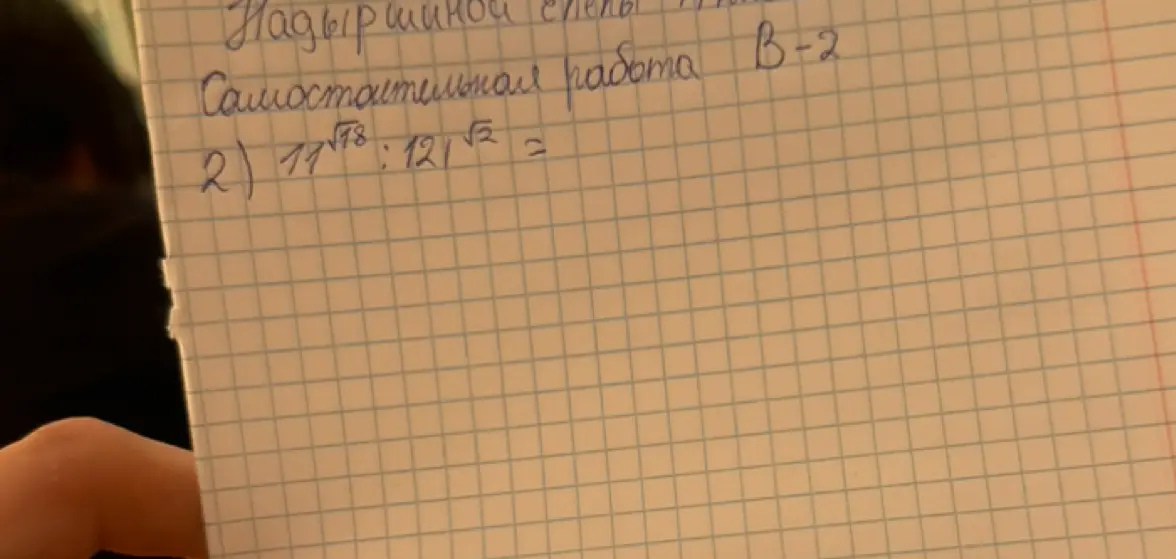 Надыршиной Елены
Самостоятельная работа В-2
2) 11^√18 : 121^√2 =